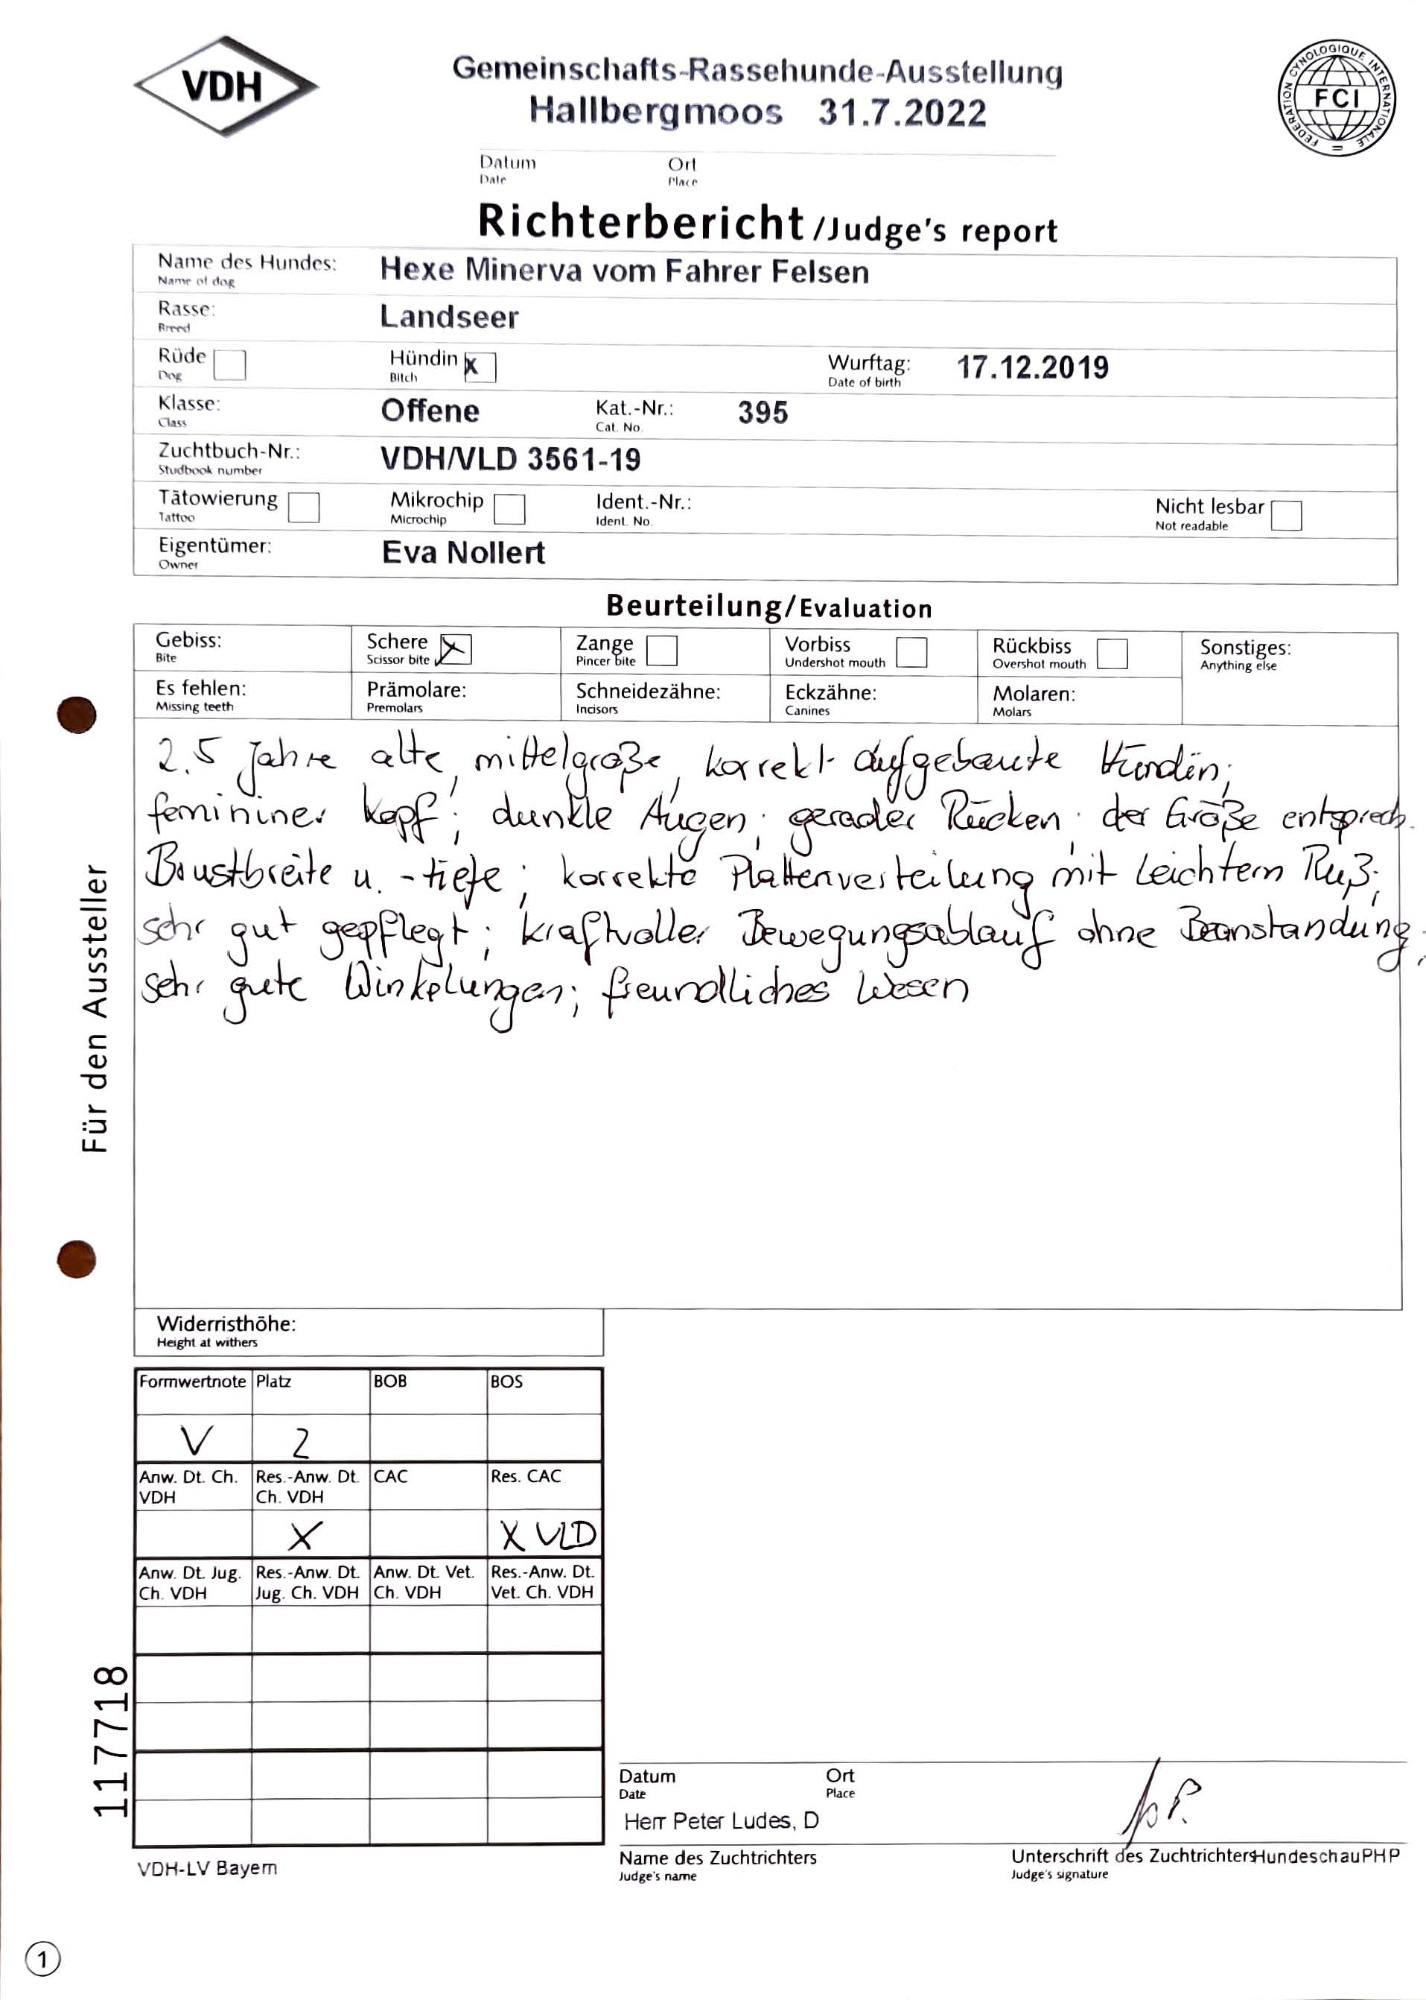 VDH
Gemeinschafts-Rassehunde-Ausstellung
Hallbergmoos 31.7.2022
FEDERATION CYNOLOGIQUE INTERNATIONALE
FCI
Datum Ort
Date Place
Richterbericht/Judge's report
Name des Hundes: Hexe Minerva vom Fahrer Felsen
Name of dog
Rasse: Landseer
Breed
Rüde Hündin x Wurftag: 17.12.2019
Dog Bitch Date of birth
Klasse: Offene Kat.-Nr.: 395
Class Cat. No.
Zuchtbuch-Nr.: VDH/VLD 3561-19
Studbook number
Tätowierung Mikrochip Ident.-Nr.: Nicht lesbar
Tattoo Microchip Ident. No. Not readable
Eigentümer: Eva Nollert
Owner
Beurteilung/Evaluation
Gebiss: Schere X Zange Vorbiss Rückbiss Sonstiges:
Bite Scissor bite Pincer bite Undershot mouth Overshot mouth Anything else
Es fehlen: Prämolare: Schneidezähne: Eckzähne: Molaren:
Missing teeth Premolars Incisors Canines Molars
2,5 Jahre alte, mittelgroße, korrekt aufgebaute Hündin;
femininer Kopf; dunkle Augen; gerader Rücken; der Größe entsprech.
Brustbreite u. -tiefe; korrekte Plattenverteilung mit leichtem Ruß;
sehr gut gepflegt; kraftvoller Bewegungsablauf ohne Beanstandung,
sehr gute Winkelungen; freundliches Wesen
Für den Aussteller
Widerristhöhe:
Height at withers
Formwertnote Platz BOB BOS
V 2
Anw. Dt. Ch. VDH Res.-Anw. Dt. Ch. VDH CAC Res. CAC
X X VLD
Anw. Dt. Jug. Ch. VDH Res.-Anw. Dt. Jug. Ch. VDH Anw. Dt. Vet. Ch. VDH Res.-Anw. Dt. Vet. Ch. VDH
117718
Datum Ort
Date Place
Herr Peter Ludes, D
Name des Zuchtrichters Unterschrift des Zuchtrichters HundeschauPHP
Judge's name Judge's signature
VDH-LV Bayern
1